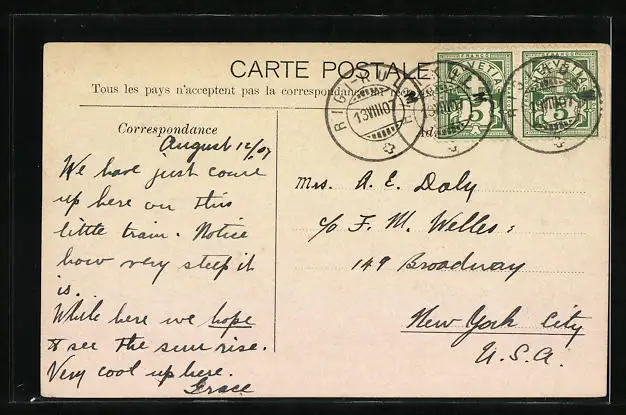 CARTE POSTALE
Tous les pays n'acceptent pas la correspondance
Correspondance
August 12/07
We have just come
up here on this
little train. Notice
how very steep it
is.
While here we hope
to see the sun rise.
Very cool up here.
Grace
HELVETIA
FRANCO
5
HELVETIA
FRANCO
5
RIGI-KULM
13VIII07
Mrs. A. E. Daly
c/o F. M. Welles:
149 Broadway
New York City
U.S.A.